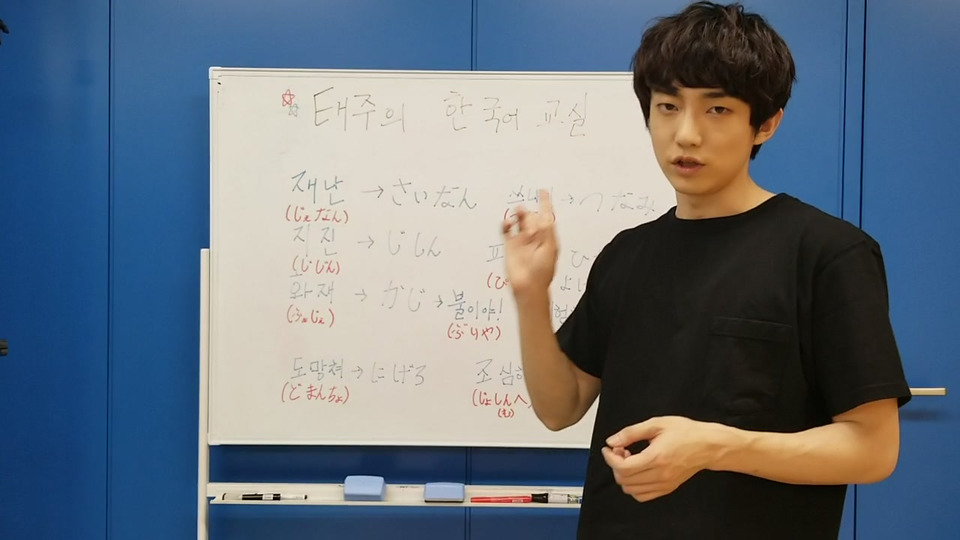 태주의 한국어 교실
재난 → さいなん
(じぇなん)
지진 → じしん
(じじん)
화재 → かじ → 불이야!
(ふぁじぇ) (ぶりや)
도망쳐 → にげろ
(どまんちょ)
→ つなみ
조심하
(じょしんへ
(む)